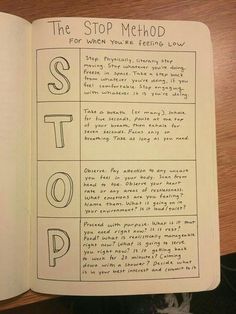 The STOP Method
For when you're feeling low
S
Stop. Physically, literally stop
moving. Stop whatever you're doing,
freeze in space. Take a step back
from whatever you're doing, if you
feel comfortable. Stop engaging
with whatever it is you're doing.
T
Take a breath (or many). Inhale
for five seconds, pause at the top
of your breath, then exhale for
seven seconds. Focus only on
breathing. Take as long as you need.
O
Observe. Pay attention to any unease
you feel in your body. Scan from
head to toe. Observe your heart
rate or any areas of uneasiness.
What emotions are you feeling?
Name them. What is going on in
your environment? Is it loud/quiet?
P
Proceed with purpose. What is it that
you need right now? Is it rest?
Food? What is realistically manageable
right now? What is going to serve
you right now? Is it getting back
to work for 20 minutes? Calming
down with a shower? Decide what
is in your best interest and commit to it